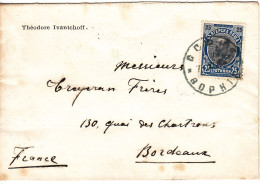 Théodore Ivantchoff.
Messieurs
Frères
130, quai des Chartrons
Bordeaux
France
25 25